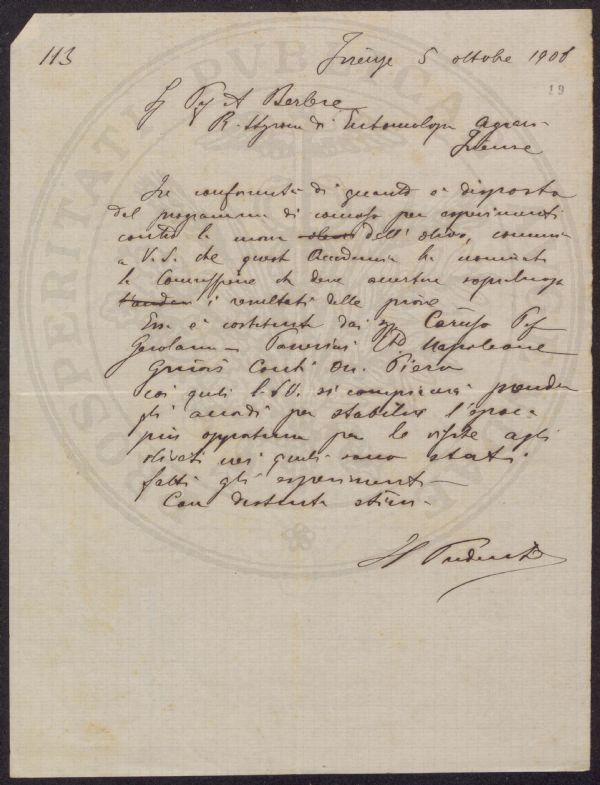 113
Firenze 5 ottobre 1908
19
Sg Prof A Berlese
R. Stazione di Entomologia Agraria
Firenze
In conformità di quanto è disposto
del programma di concorso per esperimenti
contro la mosca dell'olivo, comunico
a V.S. che questa Accademia ha nominato
la Commissione che deve accertare sopraluogo
i resultati delle prove
Essa è costituita dai Caruso Prof
Gerolamo Passerini Napoleone
Conti On. Piero
coi quali la S.V. si compiacerà prendere
gli accordi per stabilire l'epoca
più opportuna per le visite agli
oliveti nei quali sono stati
fatti gli esperimenti
Con distinta stima
Il Presidente
PROSPERITATI PUBLICAE